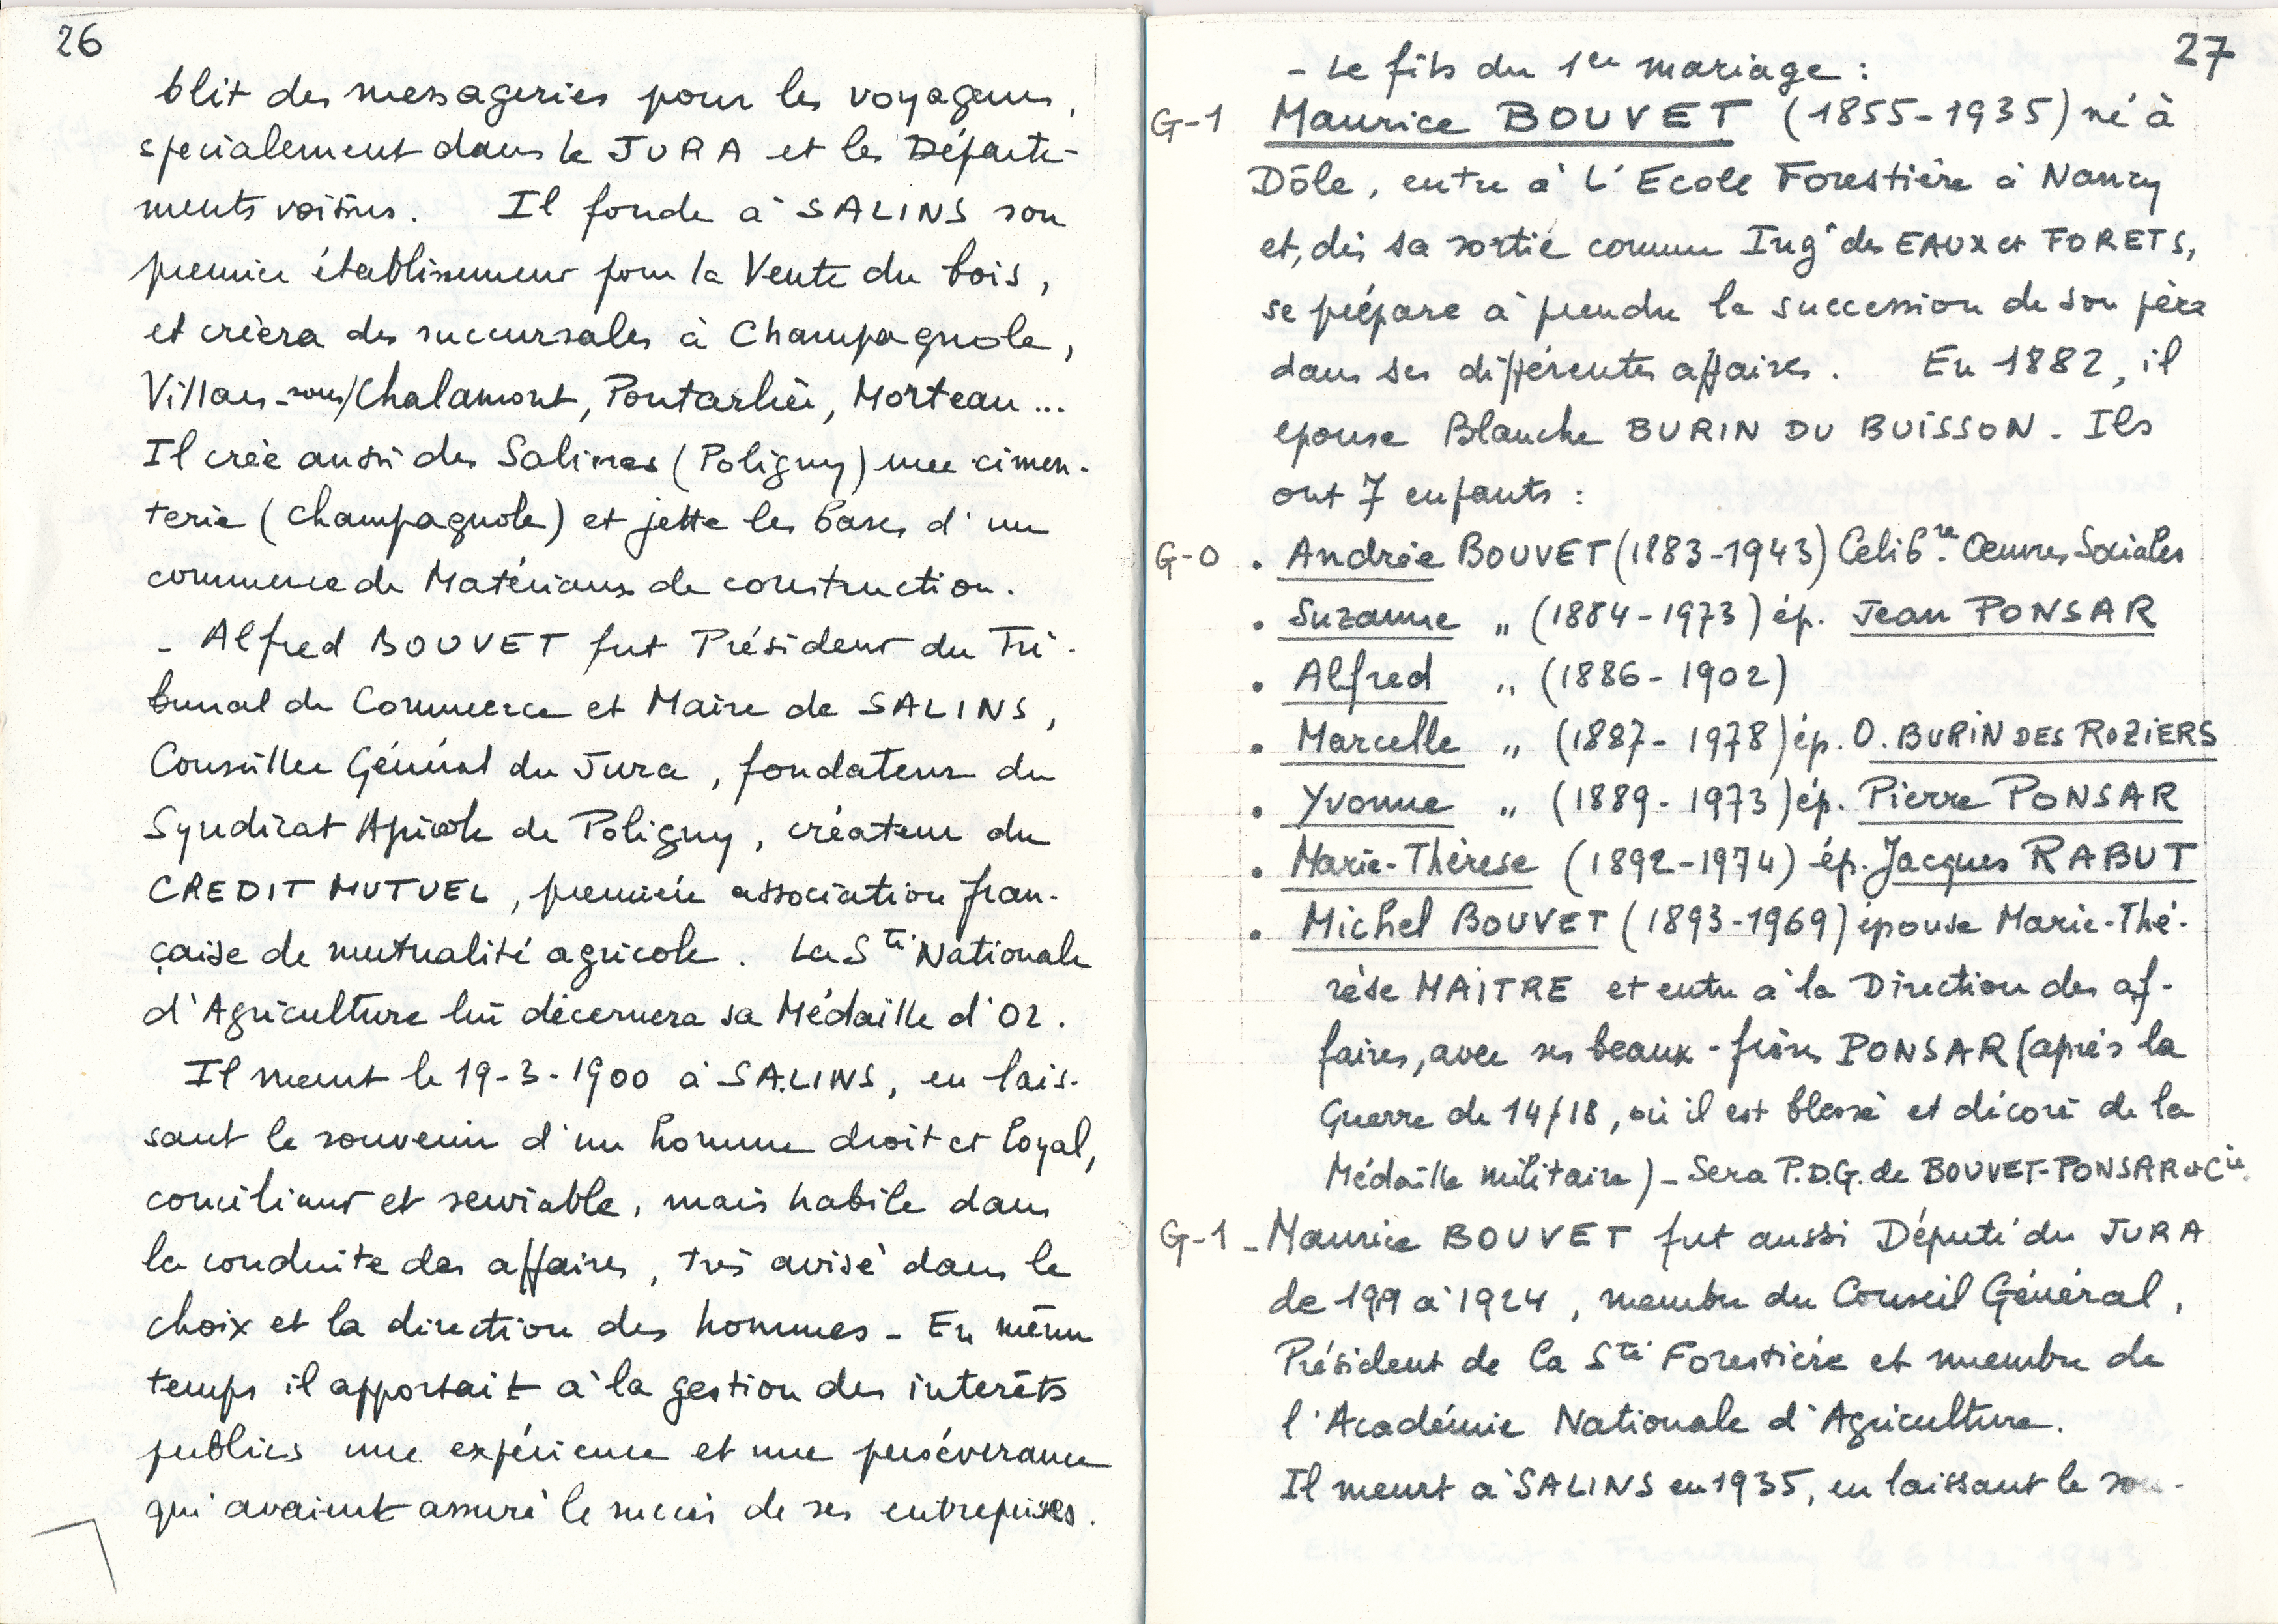 26
blit des messageries pour les voyageurs,
spécialement dans le JURA et les Départe-
ments voisins. Il fonde à SALINS son
premier établissement pour la Vente du bois,
et créera des succursales à Champagnole,
Villars-sous/Chalamont, Pontarlier, Morteau...
Il crée aussi des Salines (Poligny) une cimen-
terie (Champagnole) et jette les bases d'un
commerce de Matériaux de construction.
- Alfred BOUVET fut Président du Tri-
bunal de Commerce et Maire de SALINS,
Conseiller Général du Jura, fondateur du
Syndicat Agricole de Poligny, créateur du
CREDIT MUTUEL, première association fran-
çaise de mutualité agricole. La Sté Nationale
d'Agriculture lui décernera sa Médaille d'Or.
Il meurt le 19-3-1900 à SALINS, en lais-
sant le souvenir d'un homme droit et loyal,
conciliant et serviable, mais habile dans
la conduite des affaires, très avisé dans le
choix et la direction des hommes - En même
temps il apportait à la gestion des interêts
publics une expérience et une persévérance
qui avaient assuré le succès de ses entreprises.
27
- Le fils du 1er mariage :
G-1 Maurice BOUVET (1855-1935) né à
Dôle, entre à L'Ecole Forestière à Nancy
et, dès sa sortie comme Ingr des EAUX et FORETS,
se prépare à prendre la succession de son père
dans ses différentes affaires. En 1882, il
epouse Blanche BURIN DU BUISSON - Ils
ont 7 enfants :
G-0 . Andrée BOUVET (1883-1943) Celibre. Œuvres Sociales
. Suzanne „ (1884-1973) ép. Jean PONSAR
. Alfred „ (1886-1902)
. Marcelle „ (1887-1978) ép. O. BURIN DES ROZIERS
. Yvonne „ (1889-1973) ép. Pierre PONSAR
. Marie-Thérèse (1892-1974) ép. Jacques RABUT
. Michel BOUVET (1893-1969) épouse Marie-Thé-
rèse MAITRE et entre à la Direction des af-
faires, avec ses beaux-frères PONSAR (après la
Guerre de 14/18, où il est blessé et décoré de la
Médaille militaire) - Sera P.D.G. de BOUVET-PONSAR et Cie.
G-1 - Maurice BOUVET fut aussi Député du JURA
de 199 à 1924, membre du Conseil Général,
Président de la Sté Forestière et membre de
l'Académie Nationale d'Agriculture.
Il meurt à SALINS en 1935, en laissant le sou-